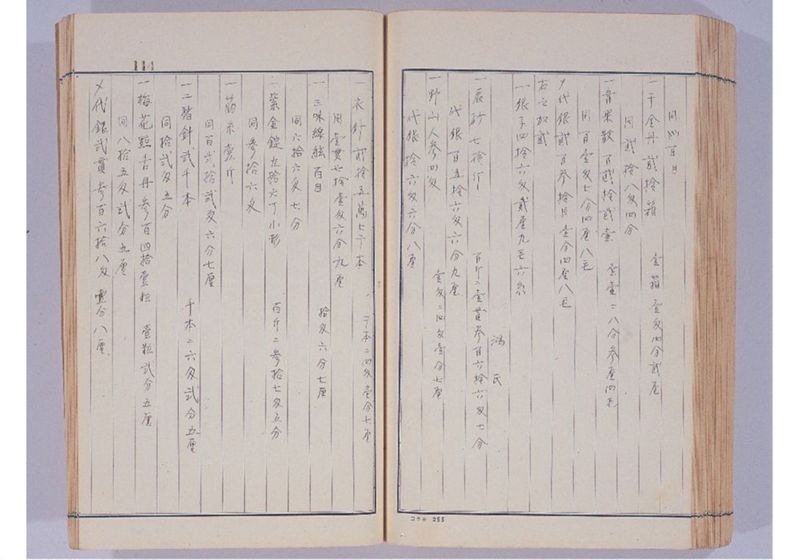 同四百目
一千金丹 弐拾箱 壱箱 壱匁四分弐厘
同 弐拾八匁四分
一青黛散 百弐拾弐壺 壱壺ニ八分参厘四毛
同 百壱匁七分四厘八毛
〆代銀弐百参拾目壱分四厘八毛
右之拟弐
一銀子四拾六匁弐厘九毛六糸
鴻氏
一辰砂七拾斤 百斤ニ壱貫参百六拾六匁七分
代銀百五拾六匁六分九厘
一野山人参四匁 壱匁ニ四匁壱分七厘
代銀拾六匁六分八厘
一衣針弐拾五萬七千本 千本ニ四匁壱分七厘
同 壱貫七拾壱匁六分九厘
一三味線絃百目 拾匁六分七厘
同六拾六匁七分
一紫金錠九拾六丁小形 百斤ニ参拾七匁五分
同参拾六匁
一莇米壱斤
同百弐拾弐匁六分七厘
一二階針弐千本 千本ニ六匁弐分五厘
同拾弐匁五分
一梅花點舌丹参百四拾壱粒 壱粒弐分五厘
同八拾五匁弐分五厘
〆代銀弐貫参百六拾八匁壱分八厘
コクヨ 255